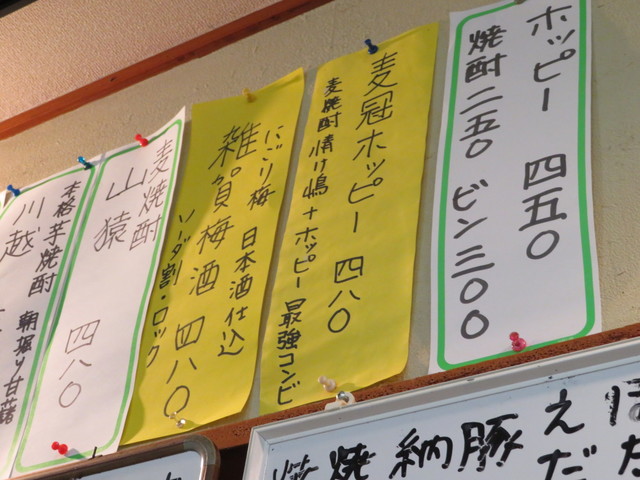 ホッピー 四五〇
焼酎二五〇 ビン三〇〇
麦冠ホッピー 四八〇
麦焼酎情け嶋+ホッピー 最強コンビ
にごり梅 日本酒仕込
雑賀梅酒 四八〇
ソーダ割・ロック
麦焼酎
山猿 四八〇
本格芋焼酎 朝掘り甘藷
川越
えだ
豚
納
焼